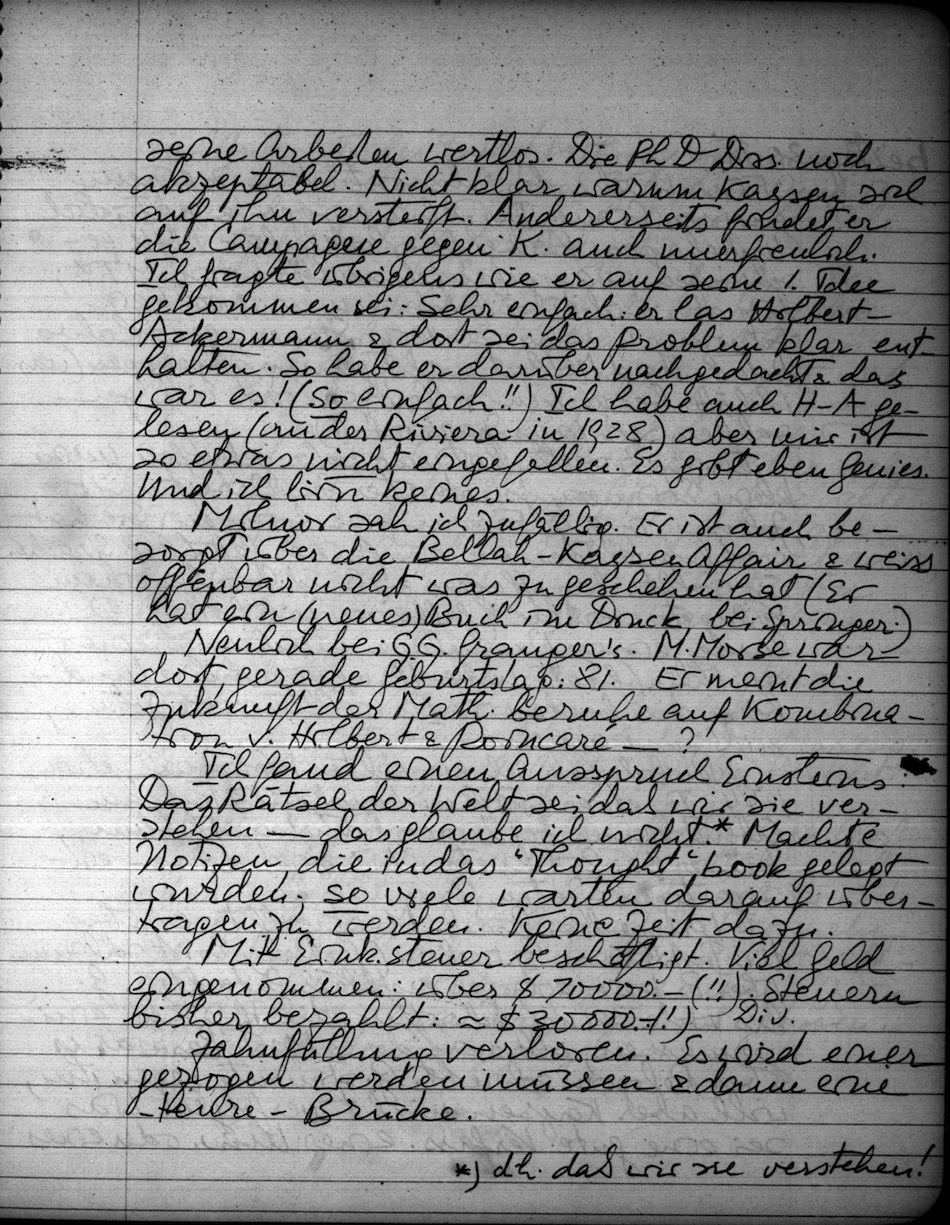 seine Arbeiten wertlos. Die Ph D Diss. noch
akzeptabel. Nicht klar warum Kaysen sich
auf ihn versteift. Andererseits findet er
die Campagne gegen K. auch unerfreulich.
Ich fragte übrigens wie er auf seine 1. Idee
gekommen sei: Sehr einfach: er las Hilbert-
Ackermann & dort sei das Problem klar ent-
halten. So habe er darüber nachgedacht & das
war es! (So einfach!!) Ich habe auch H-A ge-
lesen (an der Riviera in 1928) aber mir ist
so etwas nicht eingefallen. Es gibt eben Genies.
Und ich bin keines.
Milnor sah ich zufällig. Er ist auch be-
sorgt über die Bellah-Kaysen Affair & weiss
offenbar nicht was zu geschehen hat (Er
hat ein (neues) Buch im Druck bei Springer.)
Neulich bei G.G. Granger's. M. Morse war
dort, gerade Geburtstag: 81. Er meint die
Zukunft der Math. beruhe auf Kombina-
tion v. Hilbert & Poincaré — ?
Ich fand einen Ausspruch Einsteins:
Das Rätsel der Welt sei daß wir sie ver-
stehen — das glaube ich nicht.* Machte
Notizen die in das "Thought" book gelegt
wurden. So viele warten darauf über-
tragen zu werden. Keine Zeit dazu.
Mit Eink.steuer beschäftigt. Viel Geld
eingenommen: über $ 70000.- (!!). Steuern
bisher bezahlt: ≈ $ 30000.-(!) Div.
Zahnfüllung verloren. Es wird einer
gezogen werden müssen & dann eine
- teure - Brücke.
*) dh. daß wir sie verstehen!